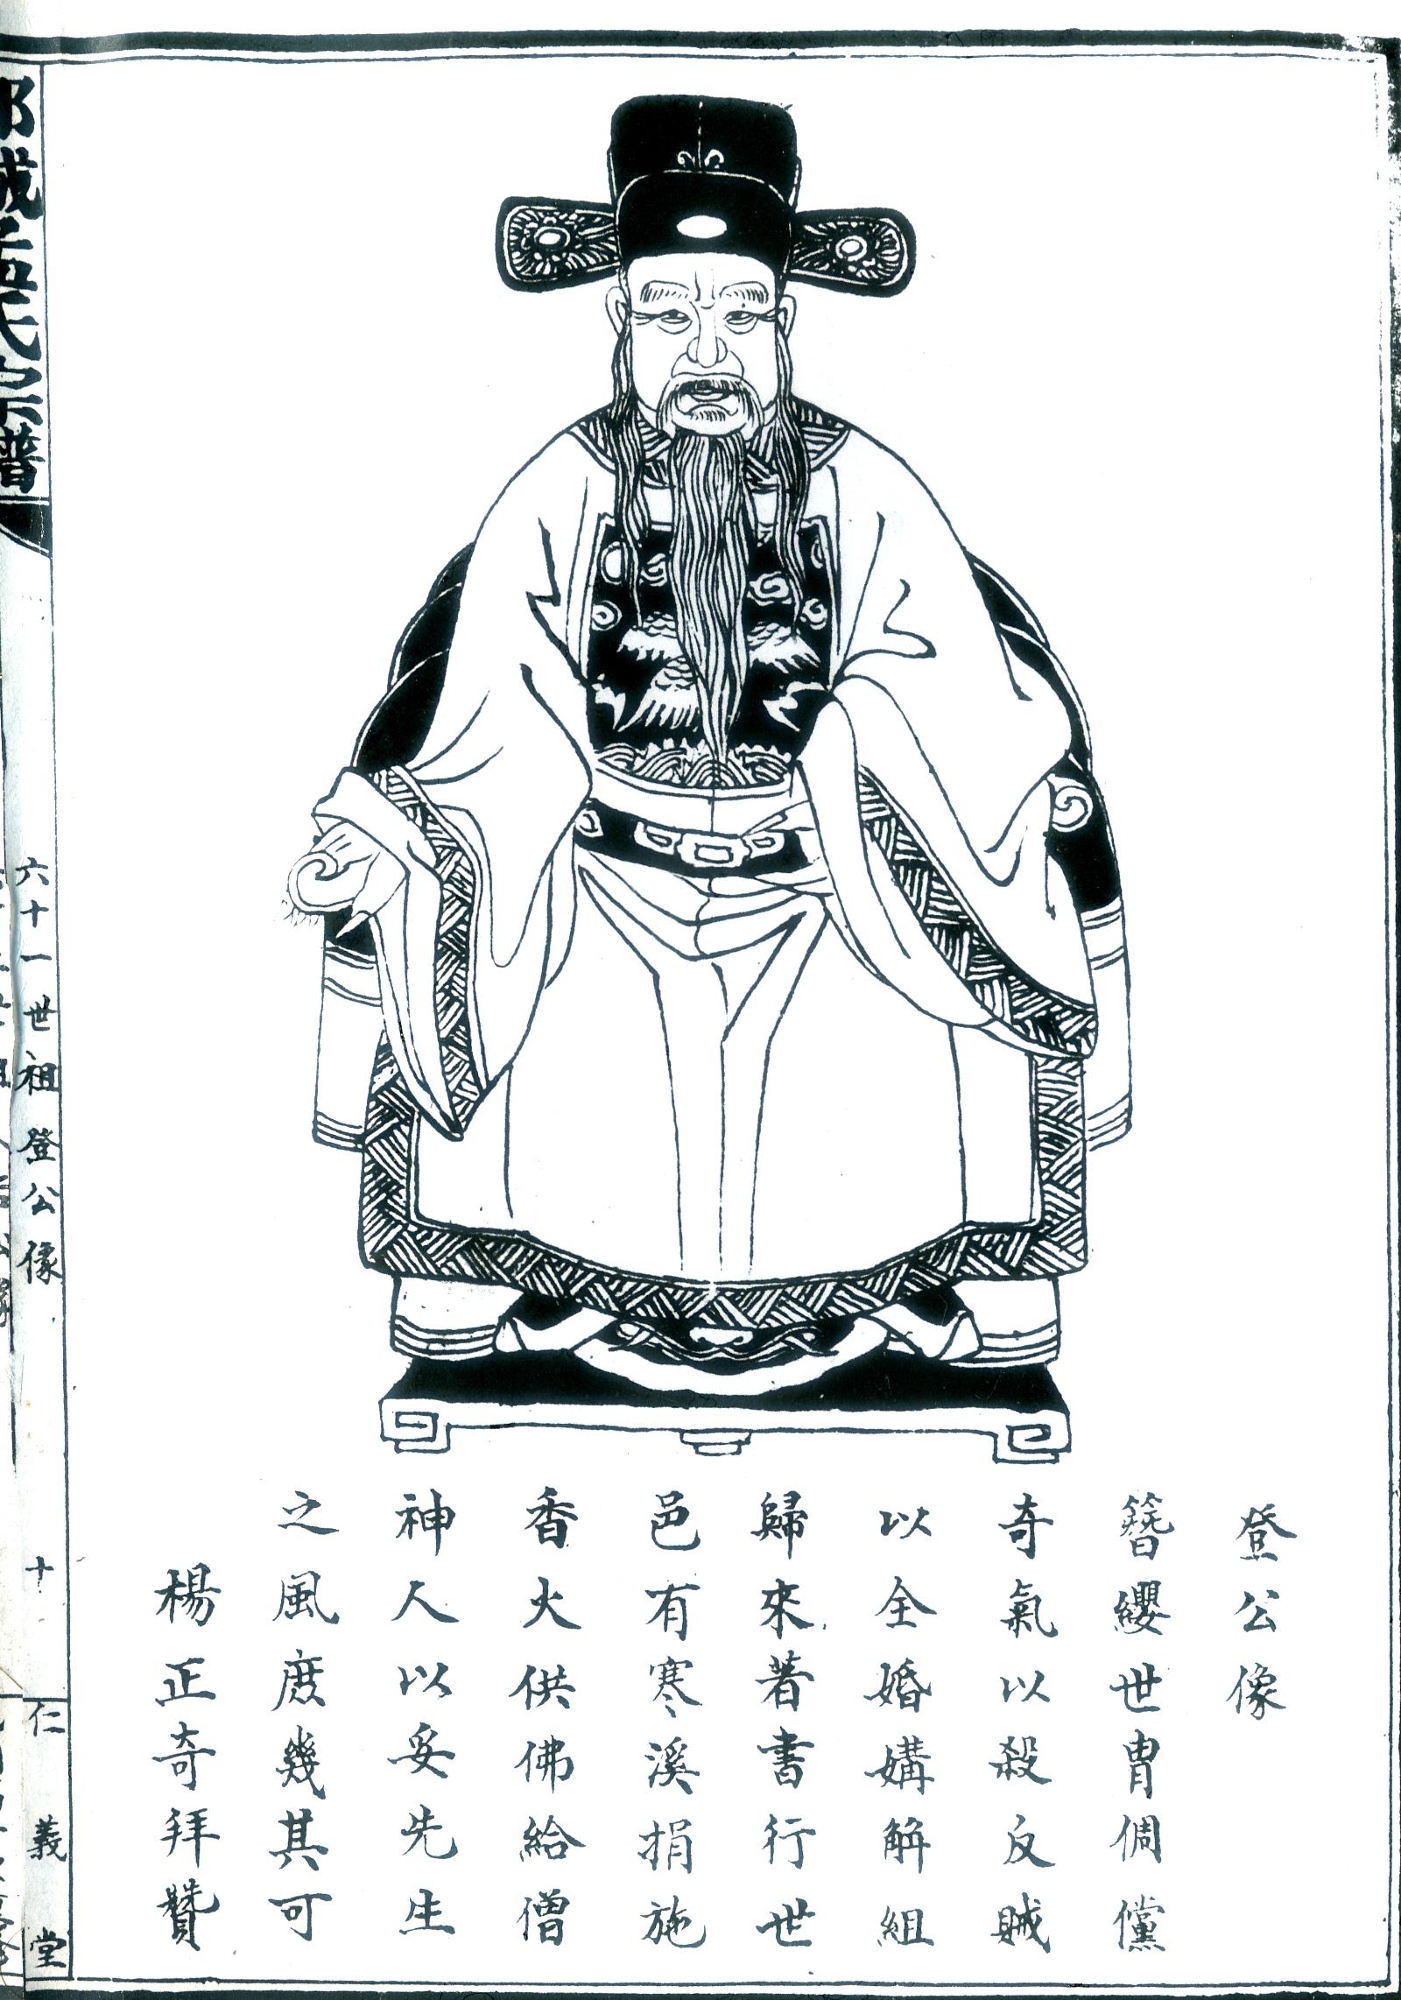 登公像
簮纓世冑倜儻
奇氣以殺反賊
以全婚媾解組
歸來著書行世
邑有寒溪捐施
香火供佛給僧
神人以妥先生
之風庶幾其可
楊正奇拜贊
氏宗譜
六十一世祖登公像
十
仁義堂